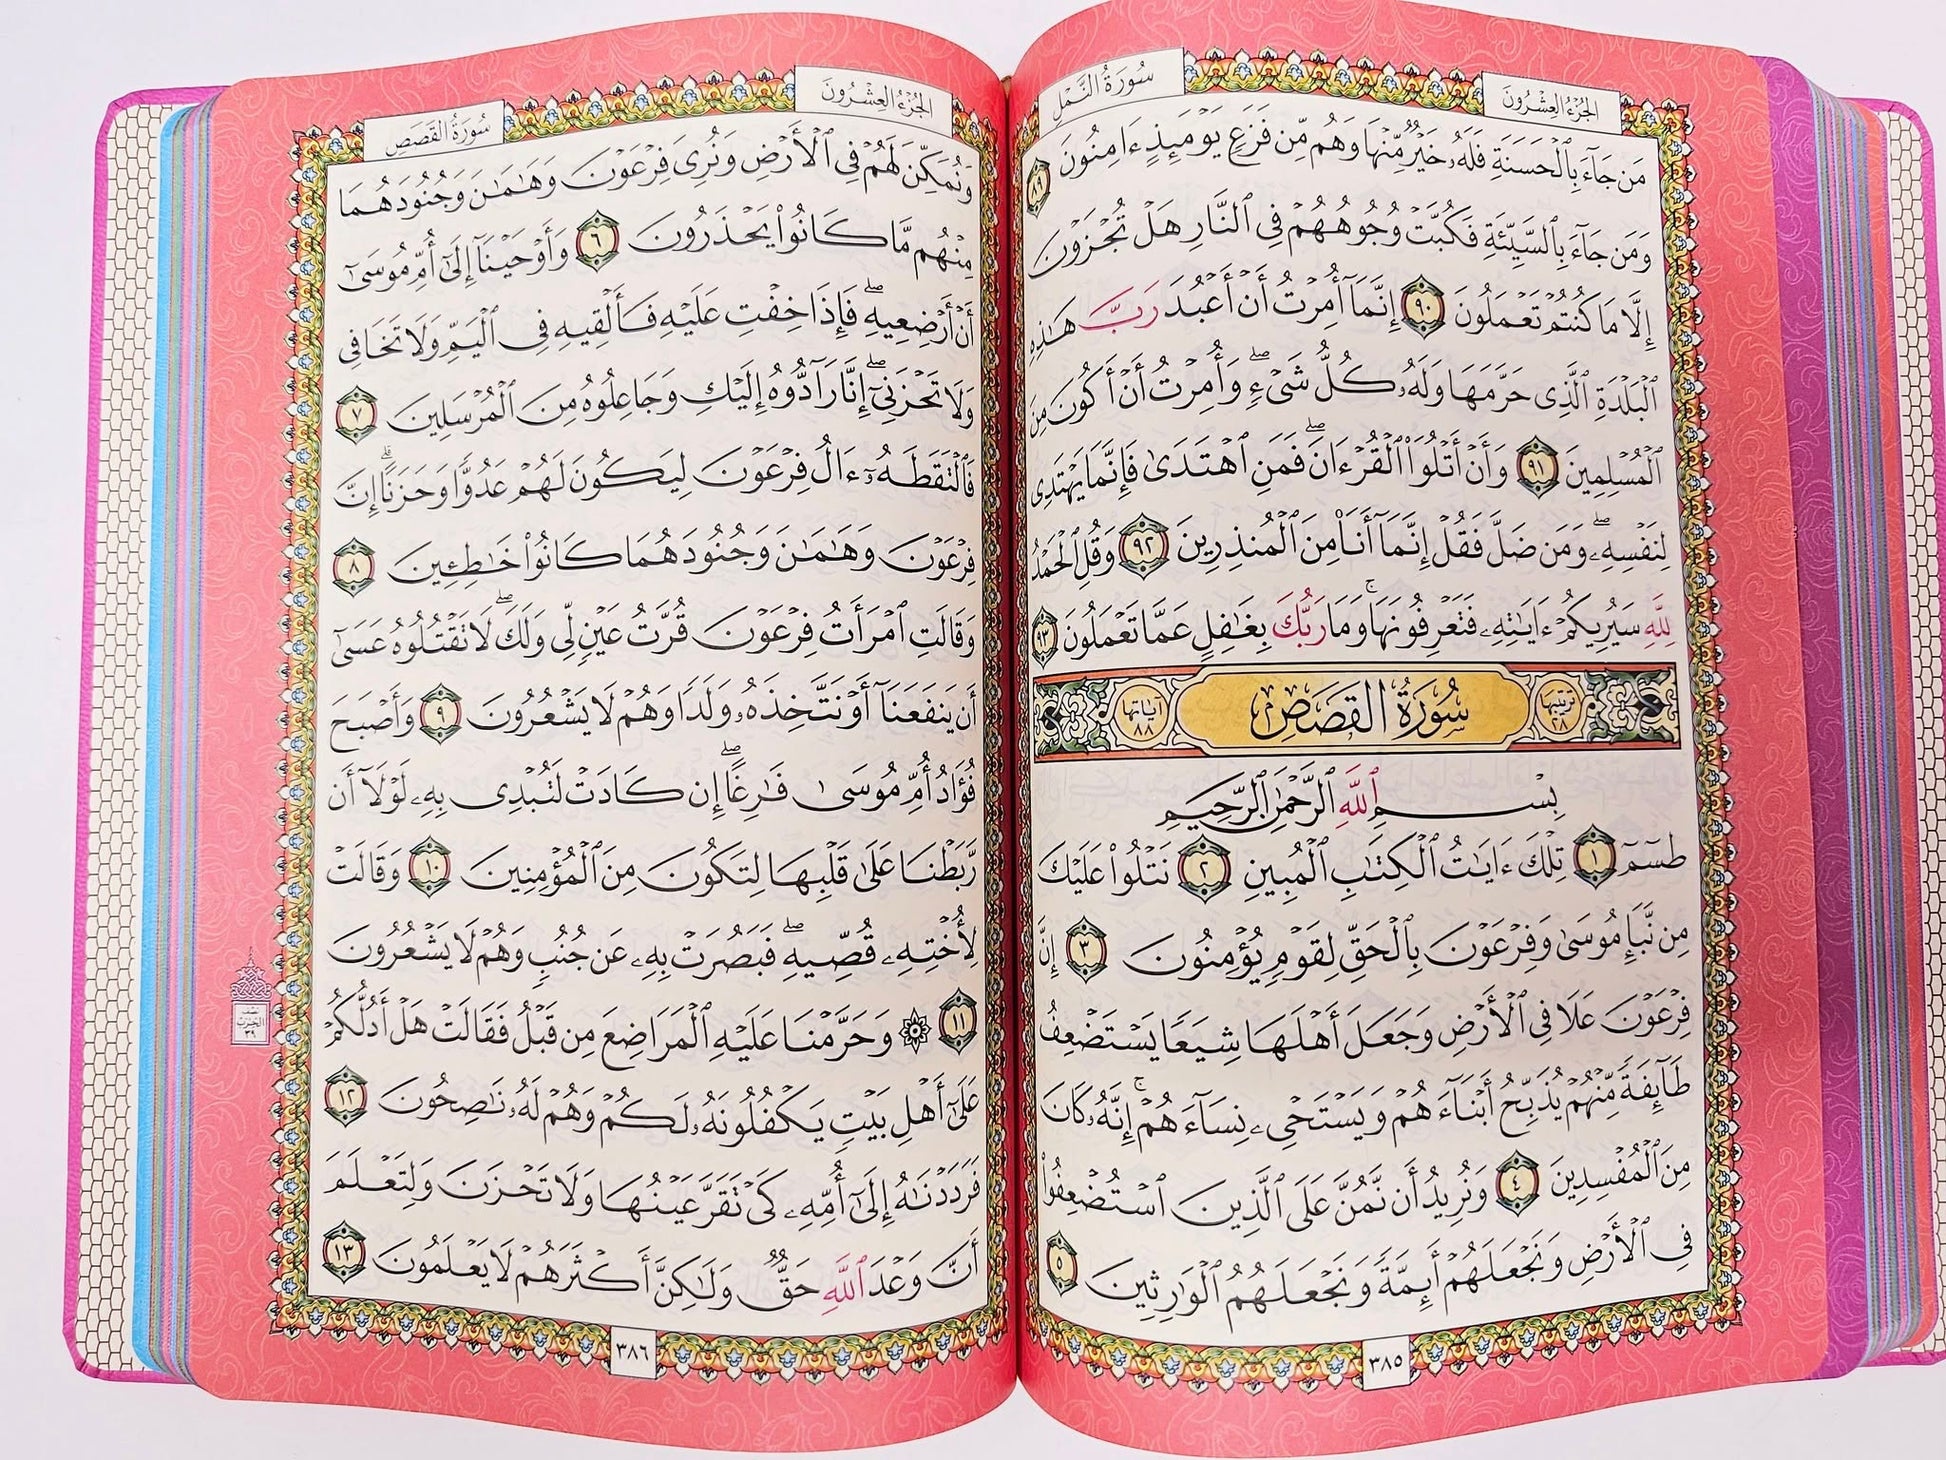 الجُزْءُ العِشْرُونَ
سُورَةُ النَّمْلِ
مَن جَآءَ بِٱلْحَسَنَةِ فَلَهُۥ خَيْرٌ مِّنْهَا وَهُم مِّن فَزَعٍ يَوْمَئِذٍ ءَامِنُونَ ٨٩
وَمَن جَآءَ بِٱلسَّيِّئَةِ فَكُبَّتْ وُجُوهُهُمْ فِى ٱلنَّارِ هَلْ تُجْزَوْنَ
إِلَّا مَا كُنتُمْ تَعْمَلُونَ ٩٠ إِنَّمَآ أُمِرْتُ أَنْ أَعْبُدَ رَبَّ هَٰذِهِ
ٱلْبَلْدَةِ ٱلَّذِى حَرَّمَهَا وَلَهُۥ كُلُّ شَىْءٍۖ وَأُمِرْتُ أَنْ أَكُونَ مِنَ
ٱلْمُسْلِمِينَ ٩١ وَأَنْ أَتْلُوَا۟ ٱلْقُرْءَانَۖ فَمَنِ ٱهْتَدَىٰ فَإِنَّمَا يَهْتَدِى
لِنَفْسِهِۦۖ وَمَن ضَلَّ فَقُلْ إِنَّمَآ أَنَا۠ مِنَ ٱلْمُنذِرِينَ ٩٢ وَقُلِ ٱلْحَمْدُ
لِلَّهِ سَيُرِيكُمْ ءَايَٰتِهِۦ فَتَعْرِفُونَهَاۚ وَمَا رَبُّكَ بِغَٰفِلٍ عَمَّا تَعْمَلُونَ ٩٣
ترتيبها ٢٨ سُورَةُ القَصَصِ آياتها ٨٨
بِسْمِ ٱللَّهِ ٱلرَّحْمَٰنِ ٱلرَّحِيمِ
طسٓمٓ ١ تِلْكَ ءَايَٰتُ ٱلْكِتَٰبِ ٱلْمُبِينِ ٢ نَتْلُوا۟ عَلَيْكَ
مِن نَّبَإِ مُوسَىٰ وَفِرْعَوْنَ بِٱلْحَقِّ لِقَوْمٍ يُؤْمِنُونَ ٣ إِنَّ
فِرْعَوْنَ عَلَا فِى ٱلْأَرْضِ وَجَعَلَ أَهْلَهَا شِيَعًا يَسْتَضْعِفُ
طَآئِفَةً مِّنْهُمْ يُذَبِّحُ أَبْنَآءَهُمْ وَيَسْتَحْىِۦ نِسَآءَهُمْۚ إِنَّهُۥ كَانَ
مِنَ ٱلْمُفْسِدِينَ ٤ وَنُرِيدُ أَن نَّمُنَّ عَلَى ٱلَّذِينَ ٱسْتُضْعِفُوا۟
فِى ٱلْأَرْضِ وَنَجْعَلَهُمْ أَئِمَّةً وَنَجْعَلَهُمُ ٱلْوَٰرِثِينَ ٥
٣٨٥
الجُزْءُ العِشْرُونَ
سُورَةُ القَصَصِ
وَنُمَكِّنَ لَهُمْ فِى ٱلْأَرْضِ وَنُرِىَ فِرْعَوْنَ وَهَٰمَٰنَ وَجُنُودَهُمَا
مِنْهُم مَّا كَانُوا۟ يَحْذَرُونَ ٦ وَأَوْحَيْنَآ إِلَىٰٓ أُمِّ مُوسَىٰٓ
أَنْ أَرْضِعِيهِۖ فَإِذَا خِفْتِ عَلَيْهِ فَأَلْقِيهِ فِى ٱلْيَمِّ وَلَا تَخَافِى
وَلَا تَحْزَنِىٓۖ إِنَّا رَآدُّوهُ إِلَيْكِ وَجَاعِلُوهُ مِنَ ٱلْمُرْسَلِينَ ٧
فَٱلْتَقَطَهُۥٓ ءَالُ فِرْعَوْنَ لِيَكُونَ لَهُمْ عَدُوًّا وَحَزَنًاۗ إِنَّ
فِرْعَوْنَ وَهَٰمَٰنَ وَجُنُودَهُمَا كَانُوا۟ خَٰطِـِٔينَ ٨
وَقَالَتِ ٱمْرَأَتُ فِرْعَوْنَ قُرَّتُ عَيْنٍ لِّى وَلَكَۖ لَا تَقْتُلُوهُ عَسَىٰٓ
أَن يَنفَعَنَآ أَوْ نَتَّخِذَهُۥ وَلَدًا وَهُمْ لَا يَشْعُرُونَ ٩ وَأَصْبَحَ
فُؤَادُ أُمِّ مُوسَىٰ فَٰرِغًاۖ إِن كَادَتْ لَتُبْدِى بِهِۦ لَوْلَآ أَن
رَّبَطْنَا عَلَىٰ قَلْبِهَا لِتَكُونَ مِنَ ٱلْمُؤْمِنِينَ ١٠ وَقَالَتْ
لِأُخْتِهِۦ قُصِّيهِۖ فَبَصُرَتْ بِهِۦ عَن جُنُبٍ وَهُمْ لَا يَشْعُرُونَ
١١ ۞ وَحَرَّمْنَا عَلَيْهِ ٱلْمَرَاضِعَ مِن قَبْلُ فَقَالَتْ هَلْ أَدُلُّكُمْ
عَلَىٰٓ أَهْلِ بَيْتٍ يَكْفُلُونَهُۥ لَكُمْ وَهُمْ لَهُۥ نَٰصِحُونَ ١٢
فَرَدَدْنَٰهُ إِلَىٰٓ أُمِّهِۦ كَىْ تَقَرَّ عَيْنُهَا وَلَا تَحْزَنَ وَلِتَعْلَمَ
أَنَّ وَعْدَ ٱللَّهِ حَقٌّ وَلَٰكِنَّ أَكْثَرَهُمْ لَا يَعْلَمُونَ ١٣
نصف
الحزب
٣٩
٣٨٦